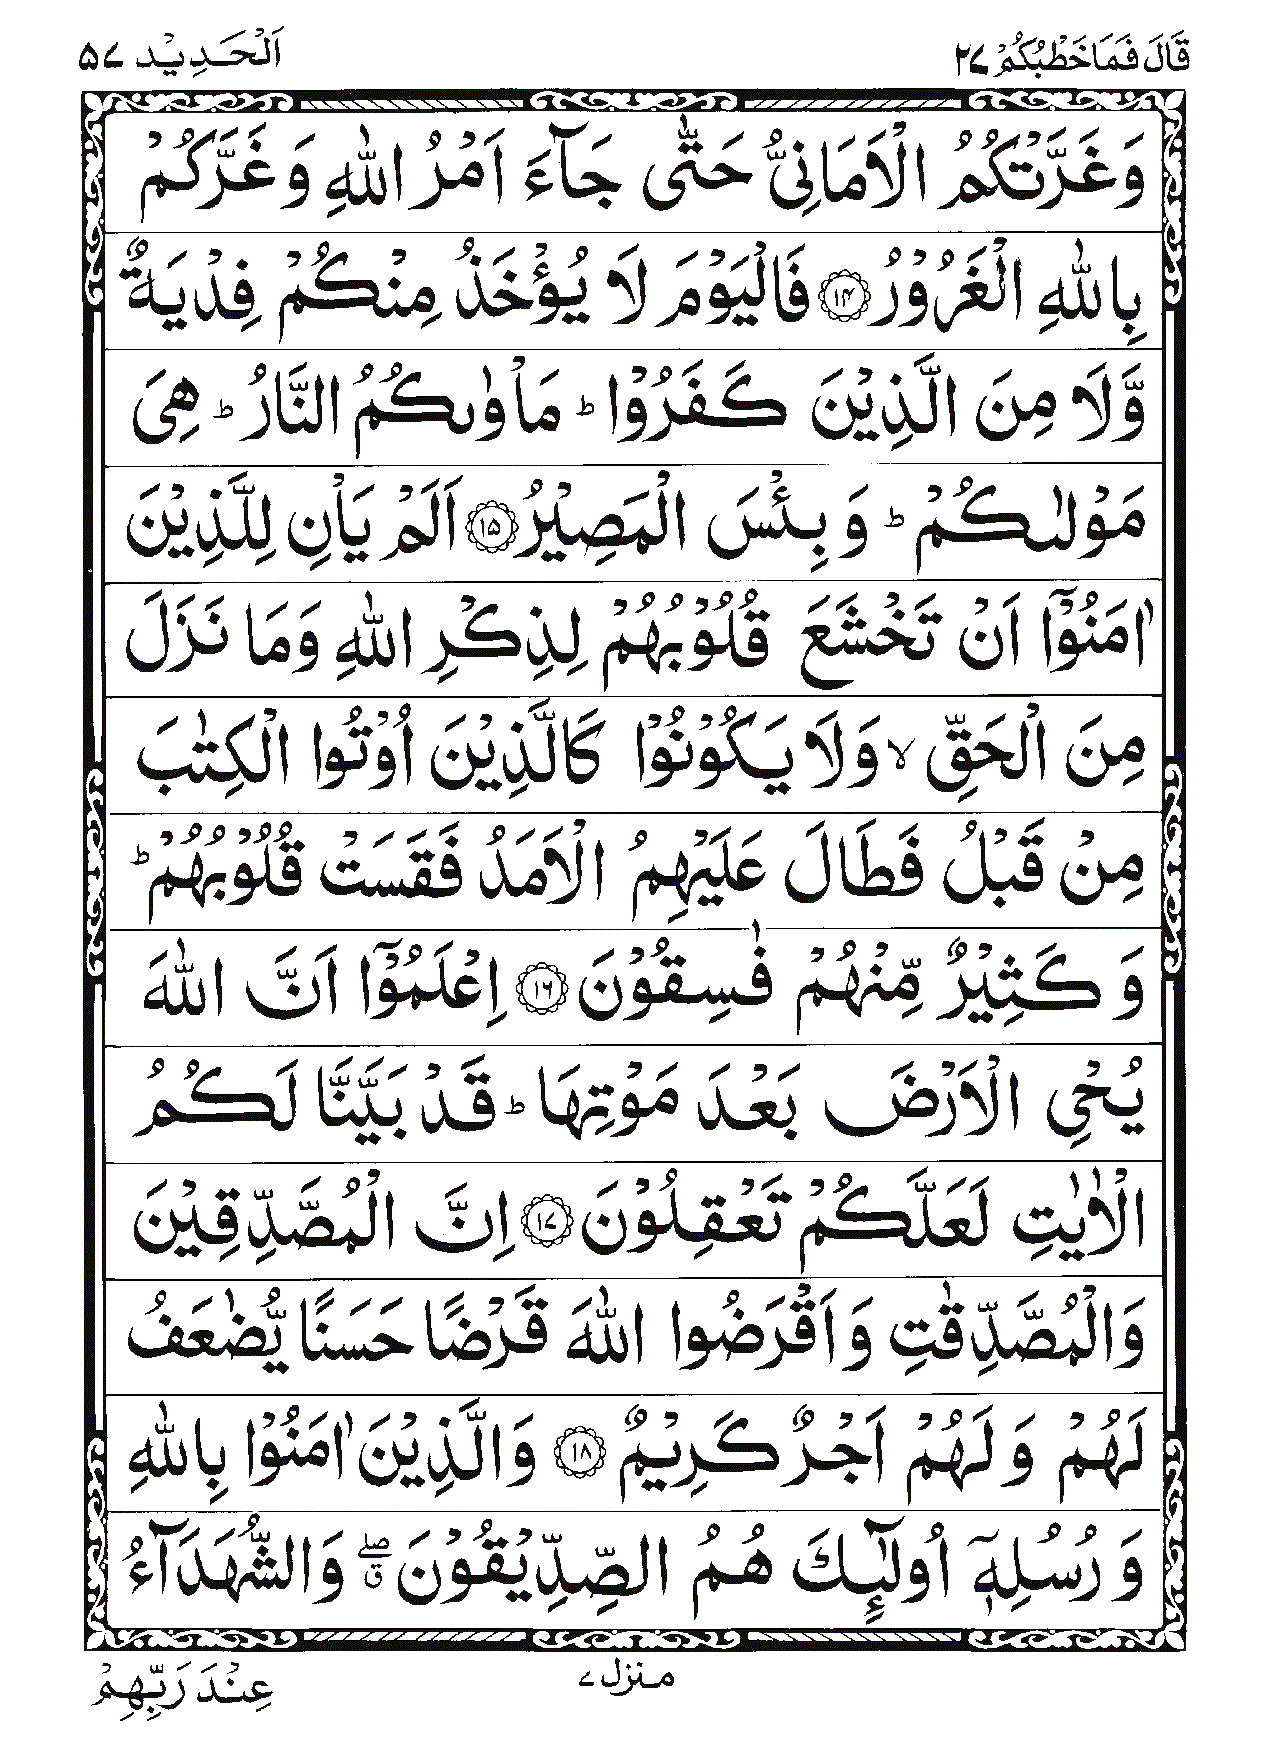 قَالَ فَمَا خَطْبُكُمْ ٢٧
اَلْحَدِيْد ٥٧
وَغَرَّتْكُمُ الْاَمَانِيُّ حَتّٰى جَآءَ اَمْرُ اللّٰهِ وَغَرَّكُمْ
بِاللّٰهِ الْغَرُوْرُ ۝١٤ فَالْيَوْمَ لَا يُؤْخَذُ مِنْكُمْ فِدْيَةٌ
وَّلَا مِنَ الَّذِيْنَ كَفَرُوْا ؕ مَاْوٰىكُمُ النَّارُ ؕ هِيَ
مَوْلٰىكُمْ ؕ وَبِئْسَ الْمَصِيْرُ ۝١٥ اَلَمْ يَاْنِ لِلَّذِيْنَ
اٰمَنُوْۤا اَنْ تَخْشَعَ قُلُوْبُهُمْ لِذِكْرِ اللّٰهِ وَمَا نَزَلَ
مِنَ الْحَقِّ ۙ وَلَا يَكُوْنُوْا كَالَّذِيْنَ اُوْتُوا الْكِتٰبَ
مِنْ قَبْلُ فَطَالَ عَلَيْهِمُ الْاَمَدُ فَقَسَتْ قُلُوْبُهُمْ ؕ
وَكَثِيْرٌ مِّنْهُمْ فٰسِقُوْنَ ۝١٦ اِعْلَمُوْۤا اَنَّ اللّٰهَ
يُحْيِ الْاَرْضَ بَعْدَ مَوْتِهَا ؕ قَدْ بَيَّنَّا لَكُمُ
الْاٰيٰتِ لَعَلَّكُمْ تَعْقِلُوْنَ ۝١٧ اِنَّ الْمُصَّدِّقِيْنَ
وَالْمُصَّدِّقٰتِ وَاَقْرَضُوا اللّٰهَ قَرْضًا حَسَنًا يُّضٰعَفُ
لَهُمْ وَلَهُمْ اَجْرٌ كَرِيْمٌ ۝١٨ وَالَّذِيْنَ اٰمَنُوْا بِاللّٰهِ
وَرُسُلِهٖۤ اُولٰٓئِكَ هُمُ الصِّدِّيْقُوْنَ ۖق وَالشُّهَدَآءُ
منزل ٧
عِنْدَ رَبِّهِمْ